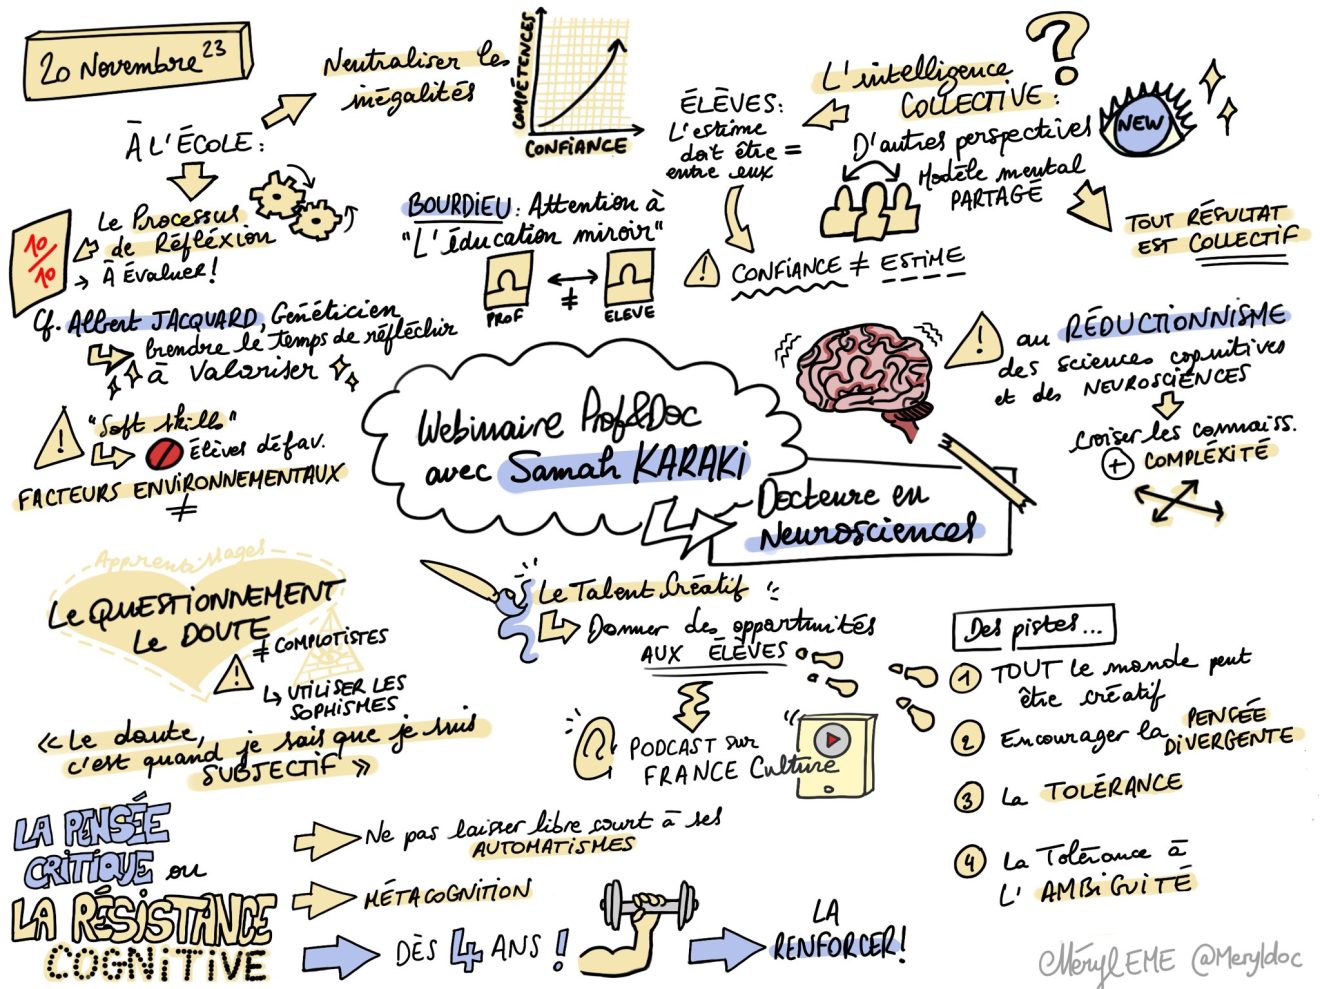 20 Novembre 23
À L'ÉCOLE :
Neutraliser les
inégalités
COMPÉTENCES
CONFIANCE
Le Processus
de Réfléxion
→ À Évaluer !
10/10
Cf. Albert JACQUARD, Généticien
Prendre le temps de réfléchir
à Valoriser
"Soft skills"
Élèves défav.
FACTEURS ENVIRONNEMENTAUX
≠
BOURDIEU : Attention à
"L'éducation miroir"
PROF
≠
ELEVE
L'intelligence
COLLECTIVE :
?
NEW
D'autres perspectives
Modèle mental
PARTAGÉ
ÉLÈVES :
L'estime
doit être =
entre eux
CONFIANCE ≠ ESTIME
TOUT RÉSULTAT
EST COLLECTIF
au RÉDUCTIONNISME
des sciences cognitives
et des NEUROSCIENCES
Croiser les connaiss.
+ COMPLÉXITÉ
Webinaire Prof&Doc
avec Samah KARAKI
Docteure en
Neurosciences
Apprentissages
Le QUESTIONNEMENT
Le DOUTE
≠ COMPLOTISTES
UTILISER LES
SOPHISMES
« Le doute,
c'est quand je sais que je suis
SUBJECTIF »
Le Talent Créatif
Donner des opportunités
AUX ÉLÈVES
PODCAST sur
FRANCE Culture
Des pistes...
1 TOUT le monde peut
être créatif
2 Encourager la PENSÉE
DIVERGENTE
3 La TOLÉRANCE
4 La Tolérance à
L'AMBIGUITÉ
LA PENSÉE
CRITIQUE ou
LA RÉSISTANCE
COGNITIVE
Ne pas laisser libre court à ses
AUTOMATISMES
MÉTACOGNITION
DÈS 4 ANS !
LA
RENFORCER !
Méryl EME @Meryldoc